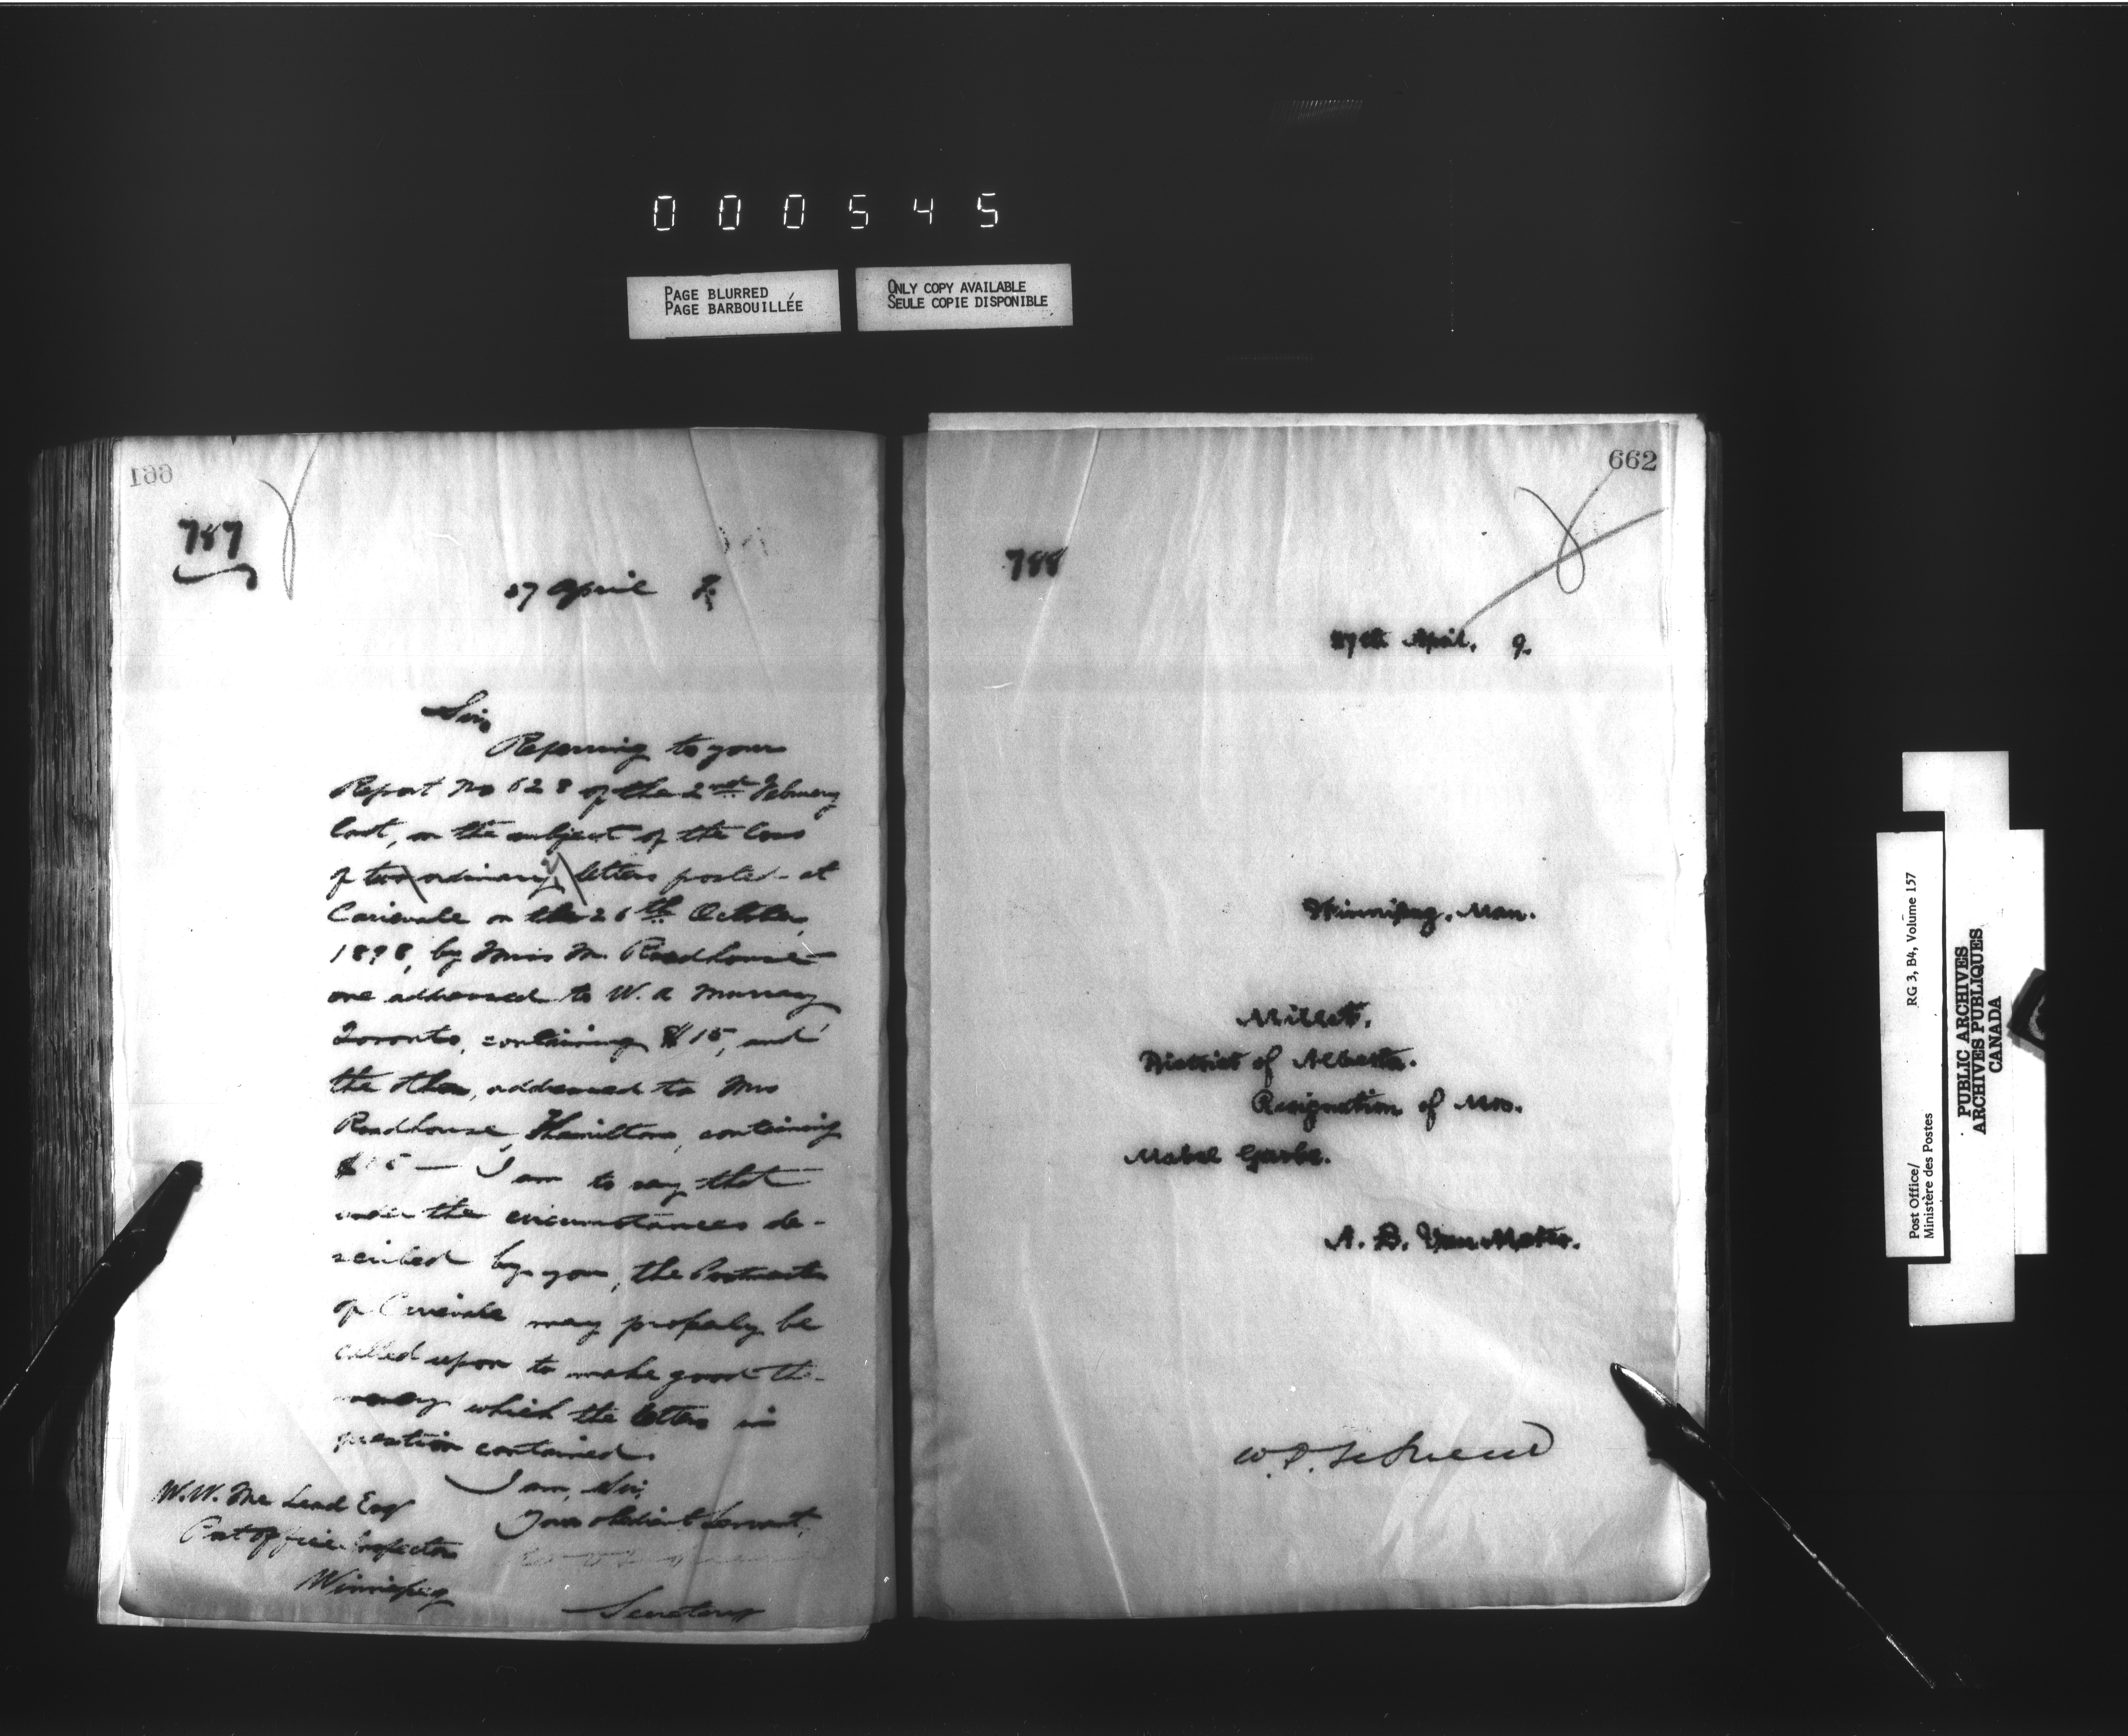 000545
PAGE BLURRED
PAGE BARBOUILLÉE
ONLY COPY AVAILABLE
SEULE COPIE DISPONIBLE
661
787
27 April 9.
Sir,
Referring to your
Report No 628 of the 2nd February
last, on the subject of the loss
of two ordinary letters posted at
Carievale on the 26th October,
1898, by Miss M. Roadhouse
one addressed to W. A Murray
Toronto, containing $15, and
the other, addressed to Mrs
Roadhouse, Hamilton, containing
$15 — I am to say that
under the circumstances de-
scribed by you, the Postmaster
of Carievale may properly be
called upon to make good the
money which the letters in
question contained.
I am, Sir,
Your obedient Servant,
Secretary
W.W. McLeod Esq
Post Office Inspector
Winnipeg
662
788
27th April, 9.
Winnipeg, Man.
Millet,
District of Alberta.
Resignation of Mrs.
Mabel
A. B. Van Meter.
Post Office/
Ministère des Postes
RG 3, B4, Volume 157
PUBLIC ARCHIVES
ARCHIVES PUBLIQUES
CANADA